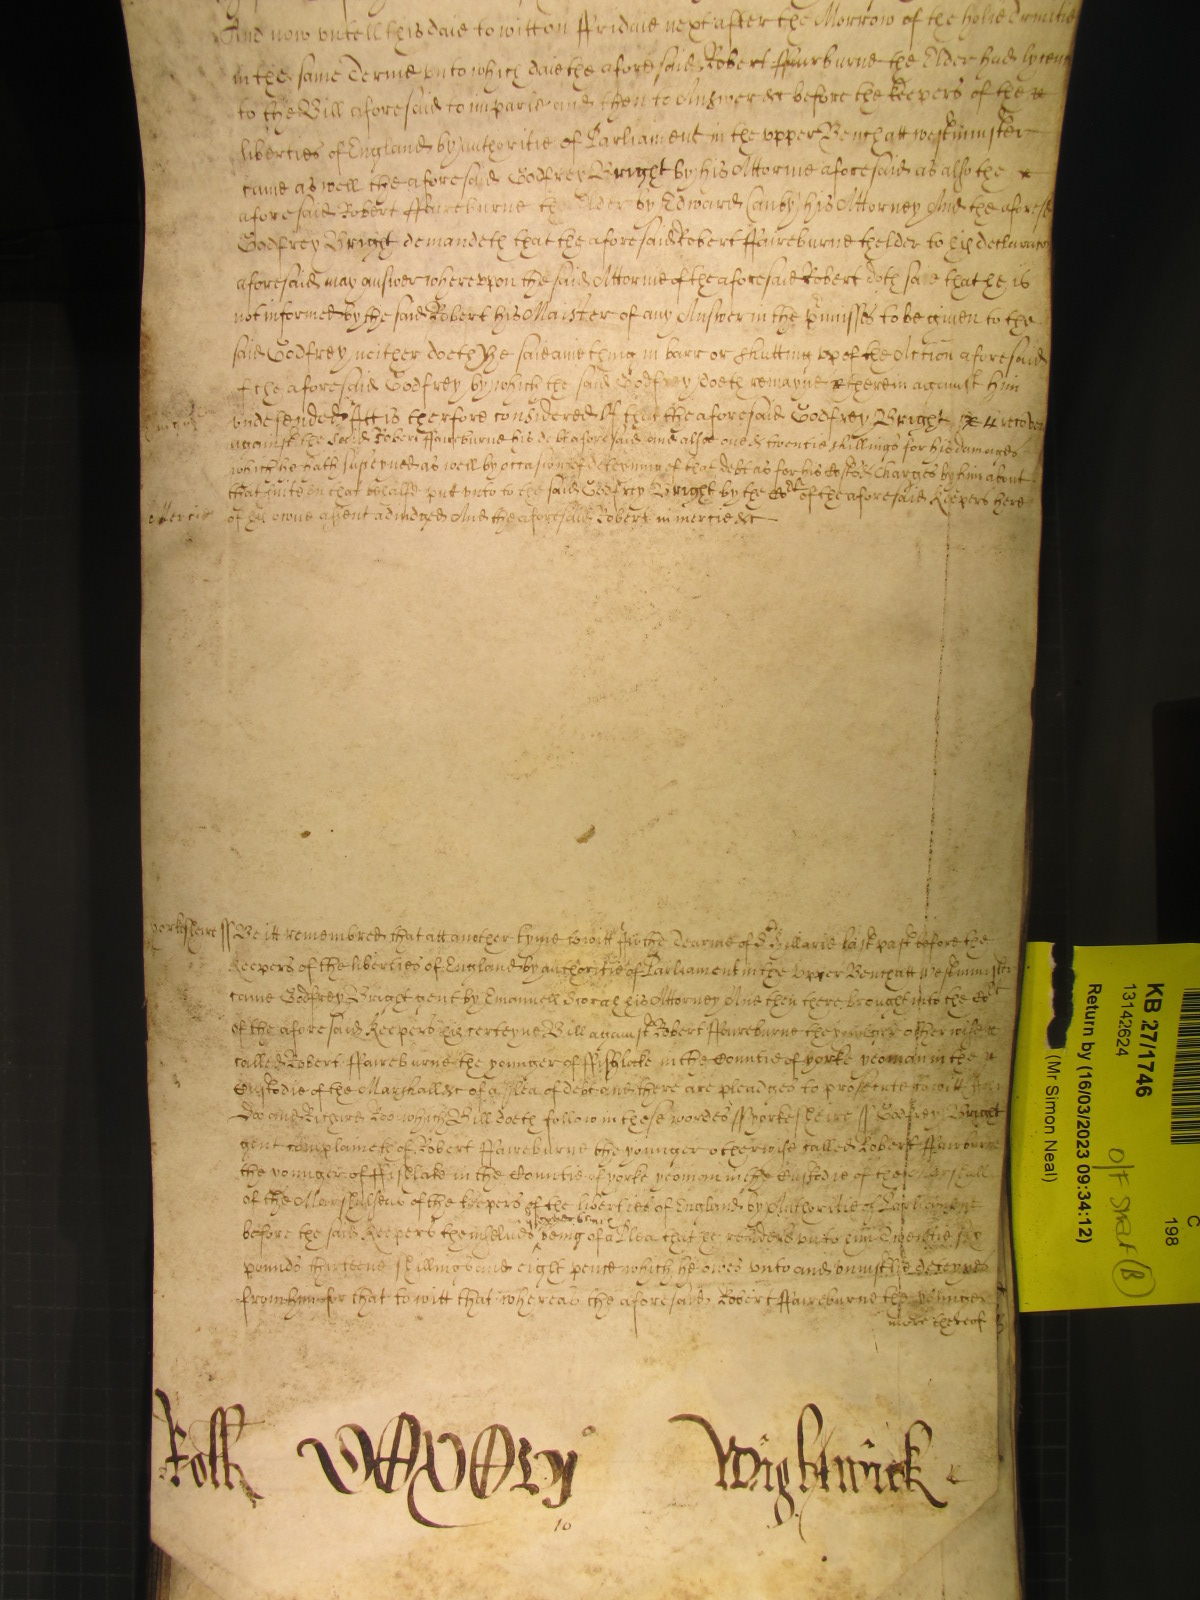 And now vntill this daie to witt on ffridaie next after the Morrow of the holie Trinitie
in the same Terme vnto which daie the aforesaid Robert ffaireburne the Elder had lycence
to the Bill aforesaid to imparle and then to Answer &c before the keepers of the
liberties of England by authoritie of Parliament in the vpper Bench att westminster
came as well the aforesaid Godfrey Bright by his Attornie aforesaid as also the
aforesaid Robert ffaireburne the Elder by Edward Canby his Attorney And the aforesd
Godfrey Bright demandeth that the aforesaid Robert ffaireburne thelder to his declaracon
aforesaid may answer wherevpon the said Attornie of the aforesaid Robert doth saie that he is
not informed by the said Robert his Maister of any Answer in the premisses to be given to the
said Godfrey neither doeth he saie anie thing in barr or shutting vp of the Action aforesaid
of the aforesaid Godfrey by which the said Godfrey doeth remayne therein against him
vndefended Itt is therfore considered that the aforesaid Godfrey Bright recover
against the said Robert ffaireburne his debt aforesaid and also one & twentie shillings for his damages
which he hath susteyned as well by occasion of deteyning of that debt as for his Costs & Charges by him about
that suite in that behalfe put vnto to the said Godfrey Bright by the Cort of the aforesaid Keepers here
of his owne assent adiudged And the aforesaid Robert in mercie &c
yorkesheire ss Be itt remembred that att another tyme to witt in the Tearme of St Hillarie last past before the
keepers of the liberties of England by authoritie of Parliament in the vpper Bench att westminster
came Godfrey Bright gent by Emanuell his Attorney And then there brought into the Cort
of the aforesaid Keepers his certeyne Bill against Robert ffaireburne the younger otherwise
called Robert ffaireburne the younger of ffishlake in the Countie of yorke yeoman in the
Custodie of the Marshall &c of a plea of debt and there are pleadges to prosecute to witt John
Doo and Richard Roo which Bill doeth follow in these wordes ss yorkesheire ss Godfrey Bright
gent complaineth of Robert ffaireburne the younger otherwise called Robert ffaireburne
the younger of ffishlake in the Countie of yorke yeoman in the Custodie of the Marshall
of the Marshalsea of the keepers of the liberties of England by Authoritie of Parliament
before the said Keepers themselues in the vpper bench being of a Plea that he render vnto him Twentie six
pounds thirteene shillings and eight pence which he owes vnto and vniustlie deteynes
from him for that to witt that whereas the aforesaid Robert ffaireburne the younger
more thereof
Rolle Wightwick
10
KB 27/1746
13142624
Return by (16/03/2023 09:34:12)
(Mr Simon Neal)
C
198
O/F Strat (B)